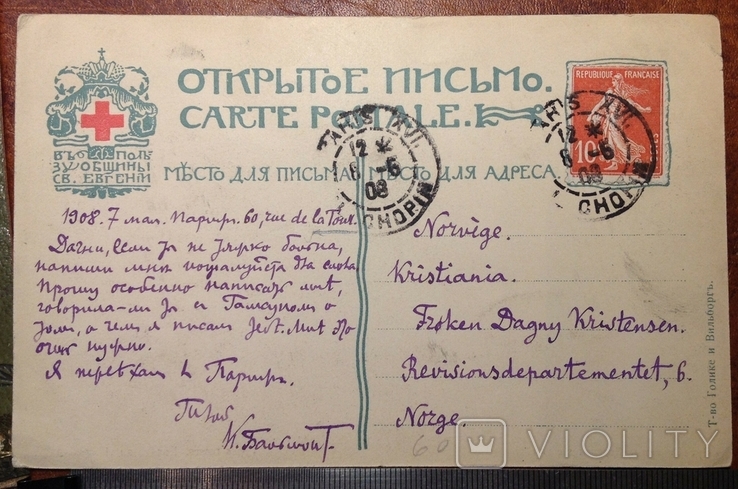 ОТКРЫТОЕ ПИСЬМО.
CARTE POSTALE.
ВЪ ПОЛЬ
ЗУ ОБЩИНЫ
СВ. ЕВГЕНIИ
МѢСТО ДЛЯ ПИСЬМА
МѢСТО ДЛЯ АДРЕСА.
REPUBLIQUE FRANÇAISE
10
PARIS XVI.
12 *
6 -5
08
CHOPIN
PARIS XVI.
12 *
6 -5
08
CHOPIN
1908. 7 мая. Париж. 60, rue de la Tour.
Дагни, если ты не
напиши мнѣ пожалуйста два слова
Прошу особенно написать мнѣ,
говорила-ли ты с о
том, о чем я писал тебѣ. Мнѣ это
очень нужно.
Я переѣхал в Париж.
К. Бальмонт.
Norvège.
Kristiania.
Frøken Dagny Kristensen.
Revisionsdepartementet, 6.
Norge.
60
Т-во Голике и Вильборгъ.
VIOLITY